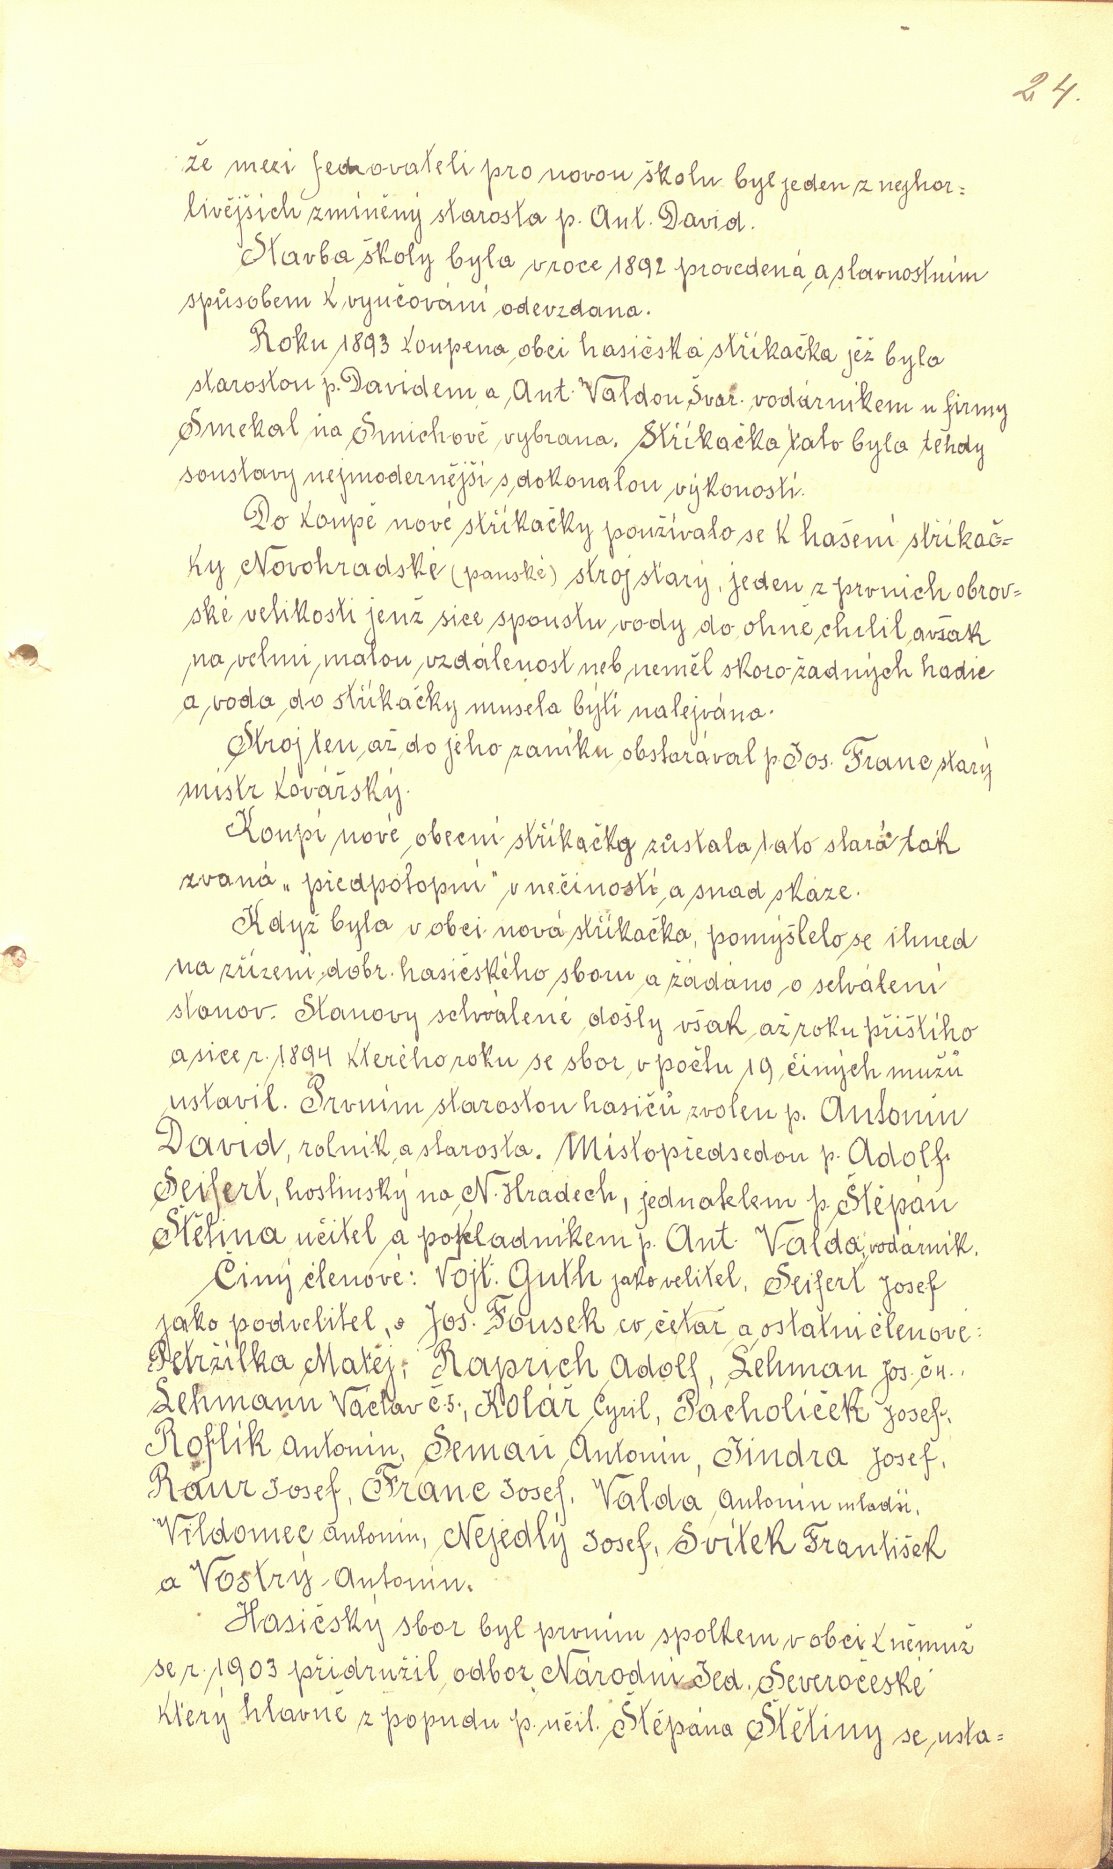 24.
že mezi jednovateli pro novou školu byl jeden z nejhor=
livějších zmíněný starosta p. Ant. David.
Stavba školy byla v roce 1892 provedená a slavnostním
spůsobem k vyučování odevzdana.
Roku 1893 koupena obci hasičská stříkačka jěž byla
starostou p. Davidem a Ant. Valdou Švar. vodárníkem u firmy
Smekal na Smíchově vybrana. Stříkačka tato byla tehdy
soustavy nejmodernější s dokonalou výkoností.
Do koupě nové stříkačky používalo se k hašení stříkač=
ky Novohradské (panské) stroj starý, jeden z prvních obrov=
ské velikosti jenž sice spoustu vody do ohně chrlil avšak
na velmi malou vzdálenost neb neměl skoro žadných hadic
a voda do stříkačky musela býti nalejvána.
Stroj ten až do jeho zaniku obstarával p. Jos. Franc starý
mistr kovářský.
Koupí nové obecní stříkačky zůstala tato stará tak
zvaná „předpotopní" v nečinosti a snad zkáze.
Když byla v obci nová stříkačka, pomýšlelo se ihned
na zřízení dobr. hasičského sboru a žádáno o schválení
stanov. Stanovy schválené došly však až roku příštího
a sice r. 1894 kterého roku se sbor v počtu 19 činých mužů
ustavil. Prvním starostou hasičů zvolen p. Antonín
David, rolník a starosta. Místopředsedou p. Adolf
Seifert, hostinský na N. Hradech, jednatelem p. Štěpán
Štětina učitel a pokladníkem p. Ant. Valda, vodárník.
Činý členové: Vojt. Guth jako velitel, Seifert Josef
jako podvelitel, a Jos. Fousek co četař a ostatní členové:
Petržilka Matěj, Raprich Adolf, Lehman Jos. č4.,
Lehmann Václav č5., Kolář Cyril, Pacholíček Josef,
Roflík Antonín, Seman Antonín, Jindra Josef,
Raur Josef, Franc Josef, Valda Antonín mladší,
Vildomec Antonín, Nejedlý Josef, Svítek František
a Vostrý Antonín.
Hasičský sbor byl prvním spolkem v obci k němuž
se r. 1903 přidružil odbor Národní Jed. Severočeské
který hlavně z popudu p. učil. Štěpána Štětiny se usta=